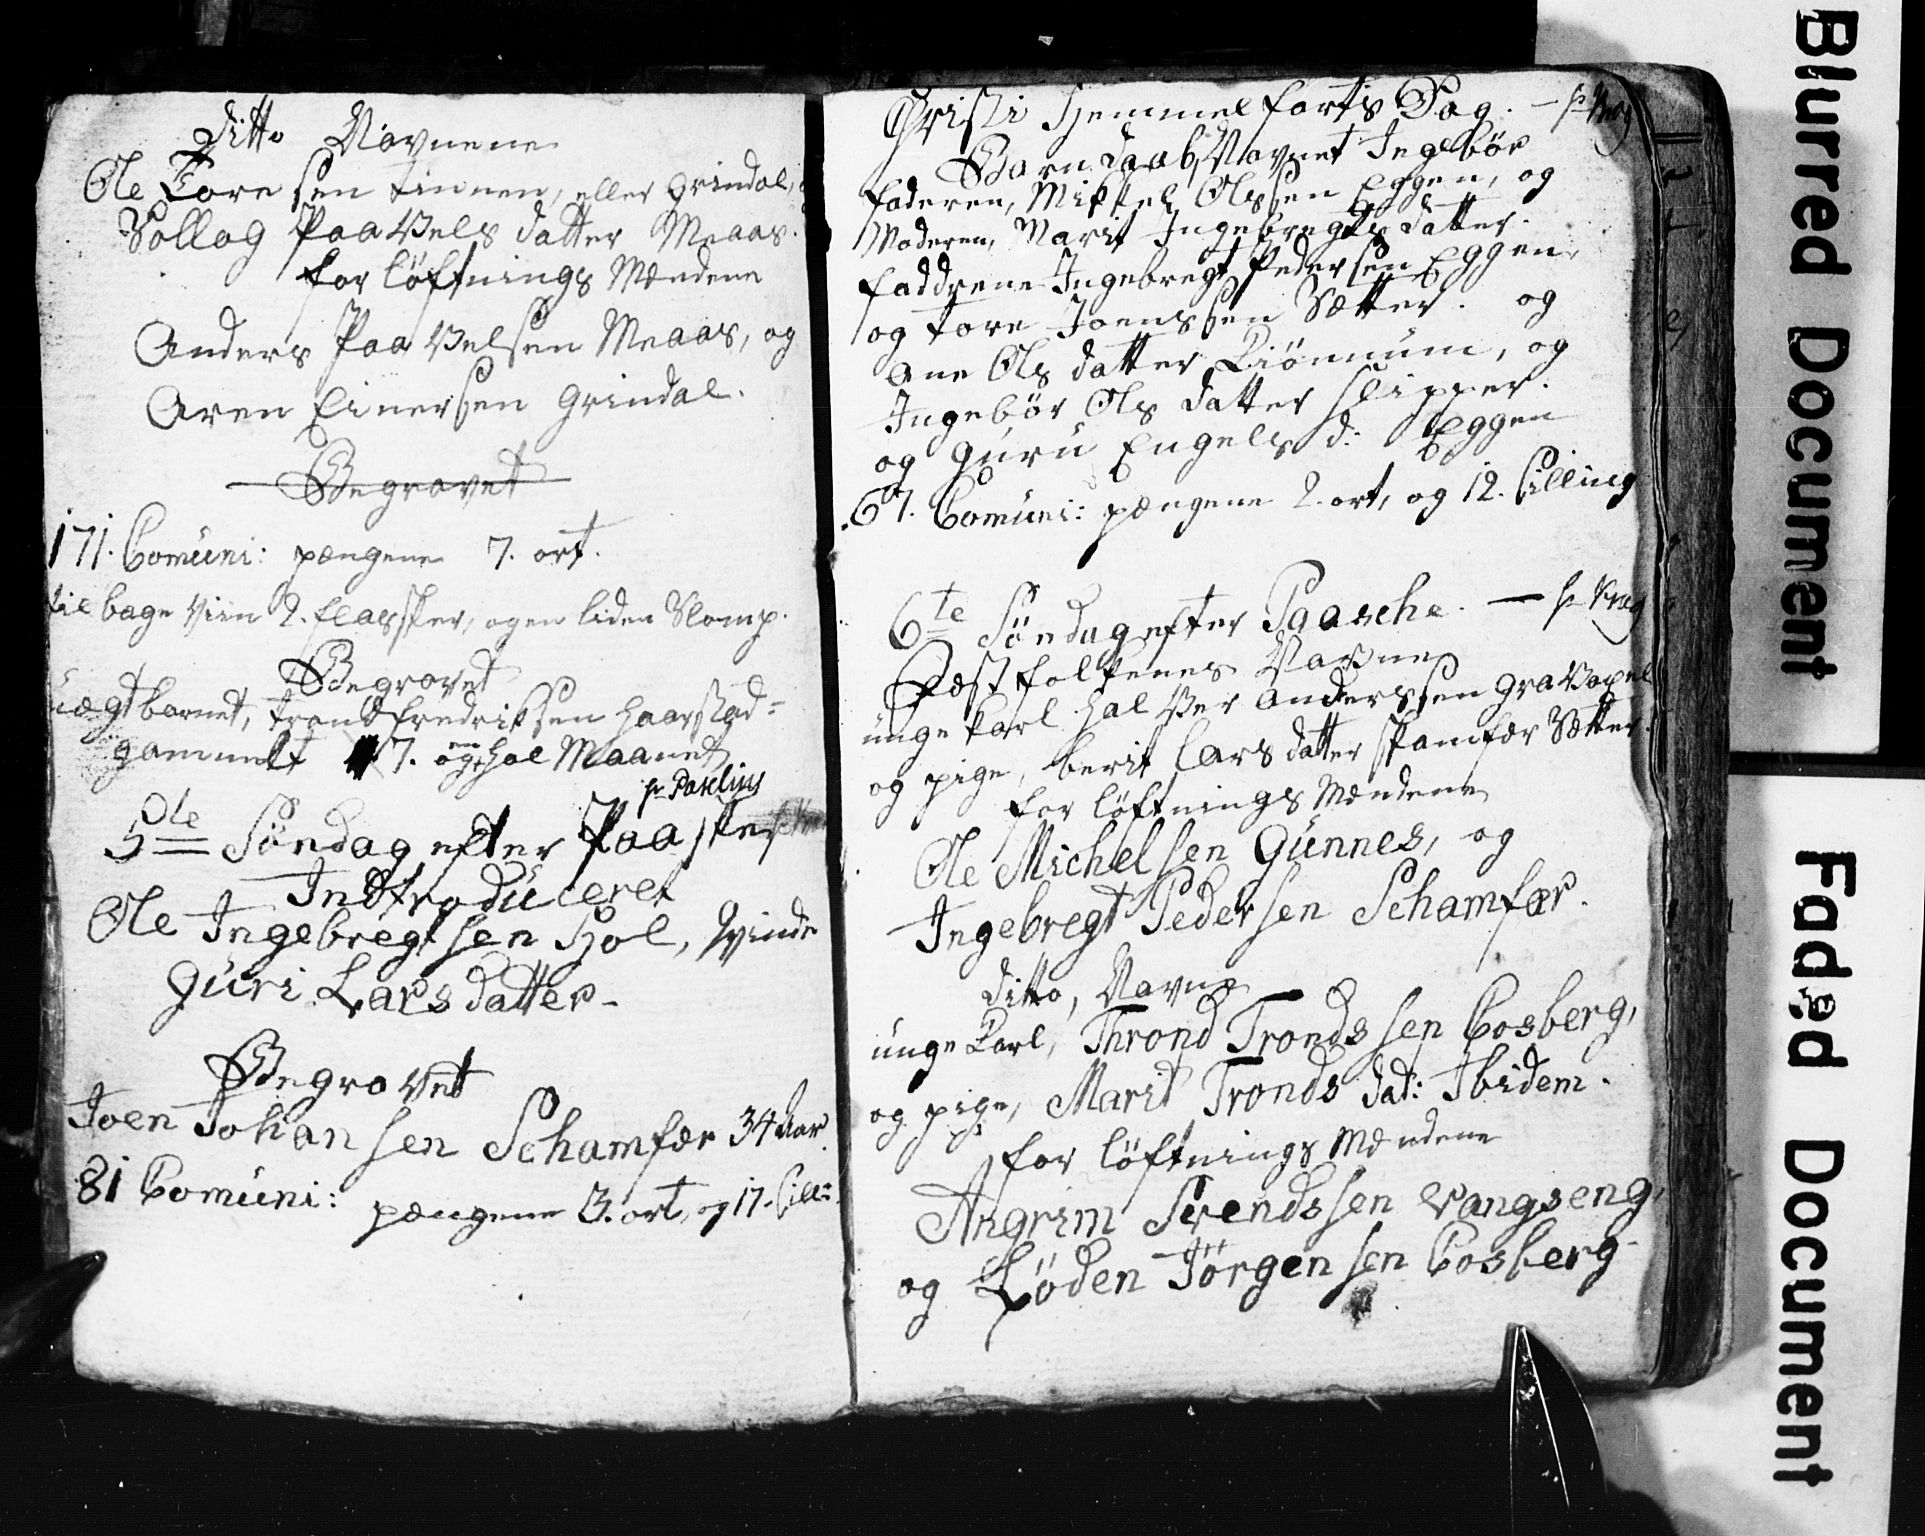 Ditto Navnene
Ole Tore sen tinnen, eller Grindal,
Sollog Paavels datter Meaas.
for löftnings Mændene
Anders Paavelsen Meaas, og
Aren Einersen Grindal.
Begravet
171. Comüni: pængene 7. ort.
til bage Viin 2. flassker, og en liden Slomp.
Begravet
üægt barnet, trond fredriksen haarstad=
gammelt 7. og en hal Maanet
hr Paselius
5te Söndag efter Paaske
Indtrodüceret
Ole Ingebregtsen Hol, qvinde
Güri Larsdatter.
Begravet
Joen Johansen Schamfær 34 Aar
81 Comüni: pængene 3. ort, og 17. sill:
Christi Hemmelfarts Dag. — hr Krog
Barn daab, Navnet Ingebör
faderen, Mikkel Olssen Eggen, og
Moderen, Marit Ingebregts datter.
faddrene Ingebregt Pedersen Eggen,
og tore Joenssen Sætter. og
ane Ols datter Liönnum, og
Ingebör Ols datter slipper.
og Guru Engels d: Eggen
67. Comüni: pængene 2. ort, og 12. silling
6te Söndag efter Paasche. — hr Krog
Fæstfolkenes Navne
ünge karl halver Anderssen Gravapel
og pige, berit lars datter skamfær Sætter.
for löftnings Mændene
Ole Michelsen Günnes, og
Ingebregt Pedersen Schamfær.
ditto, Navne
unge Karl, Thrond Trondssen Bosberg,
og pige, Marit Tronds dat: Ibidem.
for löftnings Mændene
Angrim Svendssen Vangseng,
og Löden Jörgensen Bosberg
Blurred Document
Faded Document